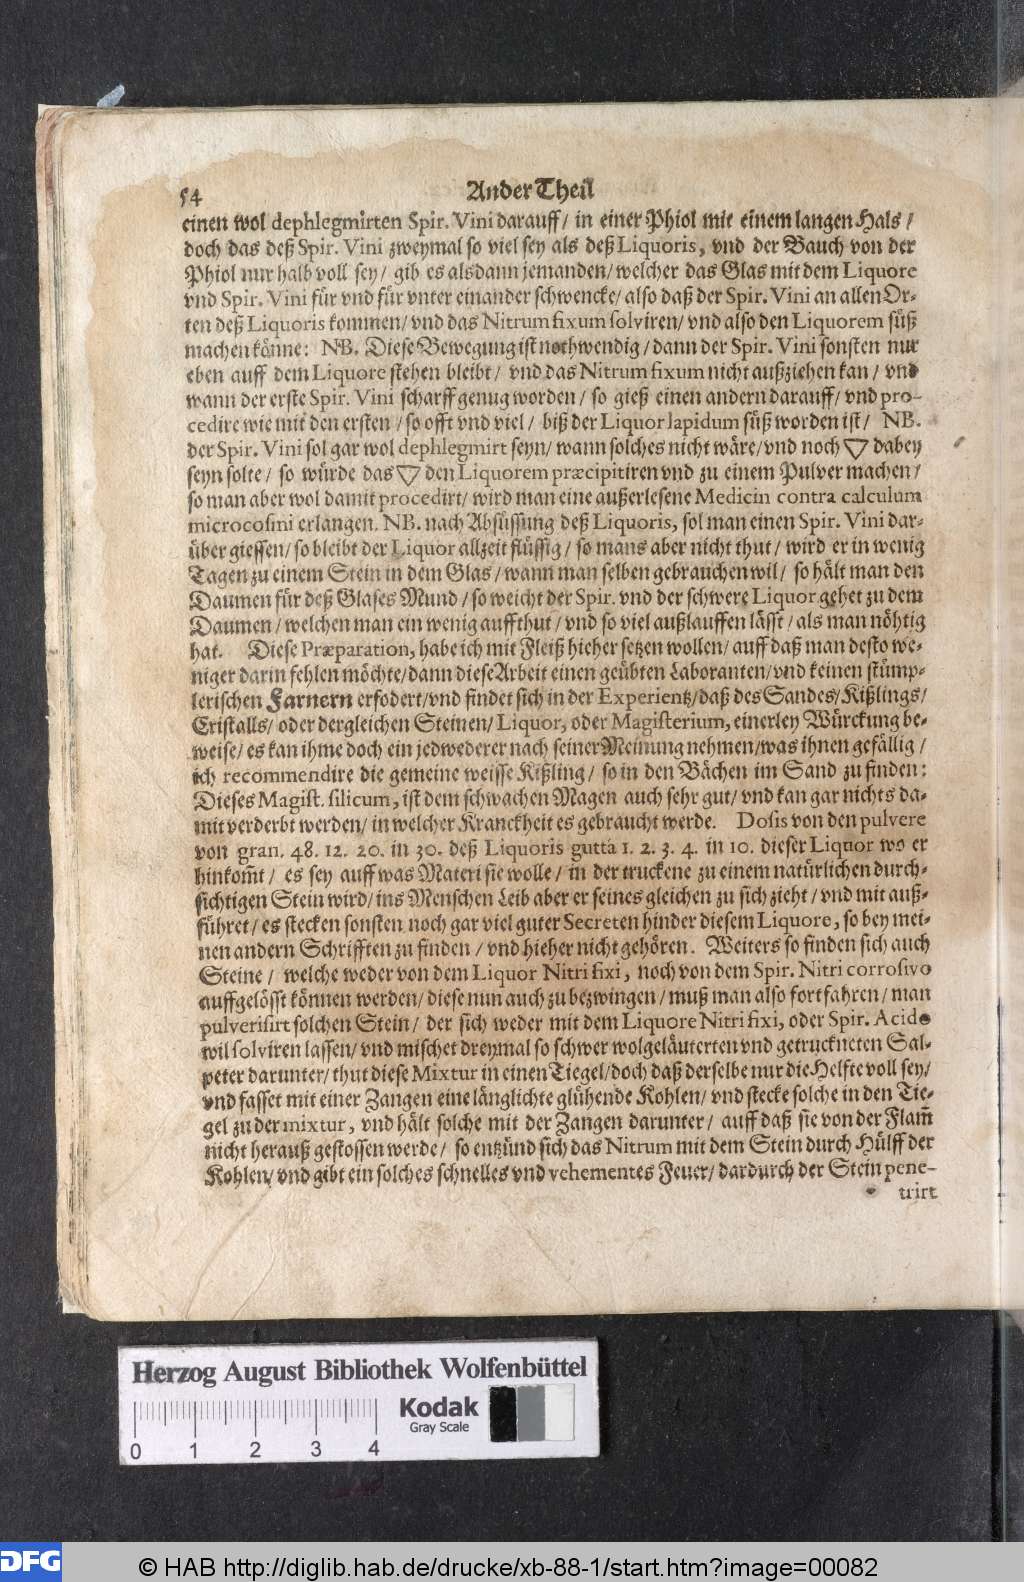 54 Ander Theil
einen wol dephlegmirten Spir. Vini darauff/ in einer Phiol mit einem langen Hals/
doch das deß Spir. Vini zweymal so viel sey als deß Liquoris, vnd der Bauch von der
Phiol nur halb voll sey/ gib es alsdann jemanden/ welcher das Glas mit dem Liquore
vnd Spir. Vini für vnd für vnter einander schwencke/ also daß der Spir. Vini an allen Or-
ten deß Liquoris kommen/ vnd das Nitrum fixum solviren/ vnd also den Liquorem süß
machen könne: NB. Diese Bewegung ist nothwendig/ dann der Spir. Vini sonsten nur
eben auff dem Liquore stehen bleibt/ vnd das Nitrum fixum nicht außziehen kan/ vnd
wann der erste Spir. Vini scharff genug worden/ so gieß einen andern darauff/ vnd pro-
cedire wie mit den ersten/ so offt vnd viel/ biß der Liquor lapidum süß worden ist/ NB.
der Spir. Vini sol gar wol dephlegmirt seyn/ wann solches nicht wäre/ vnd noch ▽ dabey
seyn solte/ so würde das ▽ den Liquorem præcipitiren vnd zu einem Pulver machen/
so man aber wol damit procedirt/ wird man eine außerlesene Medicin contra calculum
microcosmi erlangen. NB. nach Absüssung deß Liquoris, sol man einen Spir. Vini dar-
über giessen/ so bleibt der Liquor allzeit flüssig/ so mans aber nicht thut/ wird er in wenig
Tagen zu einem Stein in dem Glas/ wann man selben gebrauchen wil/ so hält man den
Daumen für deß Glases Mund/ so weicht der Spir. vnd der schwere Liquor gehet zu dem
Daumen/ welchen man ein wenig auffthut/ vnd so viel außlauffen lässt/ als man nöhtig
hat. Diese Præparation, habe ich mit Fleiß hieher setzen wollen/ auff daß man desto we-
niger darin fehlen möchte/ dann diese Arbeit einen geübten Laboranten/ vnd keinen stümp-
lerischen Farnern erfodert/ vnd findet sich in der Experientz/ daß des Sandes/ Kißlings/
Cristalls/ oder dergleichen Steinen/ Liquor, oder Magisterium, einerley Würckung be-
weise/ es kan ihme doch ein jedwederer nach seiner Meinung nehmen/ was ihnen gefällig/
ich recommendire die gemeine weisse Kißling/ so in den Bächen im Sand zu finden:
Dieses Magist. silicum, ist dem schwachen Magen auch sehr gut/ vnd kan gar nichts da-
mit verderbt werden/ in welcher Kranckheit es gebraucht werde. Dosis von den pulvere
von gran. 48. 12. 20. in 30. deß Liquoris gutta 1. 2. 3. 4. in 10. dieser Liquor wo er
hinkom̃t/ es sey auff was Materi sie wolle/ in der truckene zu einem natürlichen durch-
sichtigen Stein wird/ ins Menschen Leib aber er seines gleichen zu sich zieht/ vnd mit auß-
führet/ es stecken sonsten noch gar viel guter Secreten hinder diesem Liquore, so bey mei-
nen andern Schrifften zu finden/ vnd hieher nicht gehören. Weiters so finden sich auch
Steine/ welche weder von dem Liquor Nitri fixi, noch von dem Spir. Nitri corrosivo
auffgelösst können werden/ diese nun auch zu bezwingen/ muß man also fortfahren/ man
pulverisirt solchen Stein/ der sich weder mit dem Liquore Nitri fixi, oder Spir. Acido
wil solviren lassen/ vnd mischet dreymal so schwer wolgeläuterten vnd getruckneten Sal-
peter darunter/ thut diese Mixtur in einen Tiegel/ doch daß derselbe nur die Helfte voll sey/
vnd fasset mit einer Zangen eine länglichte glühende Kohlen/ vnd stecke solche in den Tie-
gel zu der mixtur, vnd hält solche mit der Zangen darunter/ auff daß sie von der Flam̃
nicht herauß gestossen werde/ so entzünd sich das Nitrum mit dem Stein durch Hülff der
Kohlen/ vnd gibt ein solches schnelles vnd vehementes Feuer/ dardurch der Stein pene-
trirt
Herzog August Bibliothek Wolfenbüttel
Kodak
Gray Scale
0 1 2 3 4
DFG
© HAB http://diglib.hab.de/drucke/xb-88-1/start.htm?image=00082